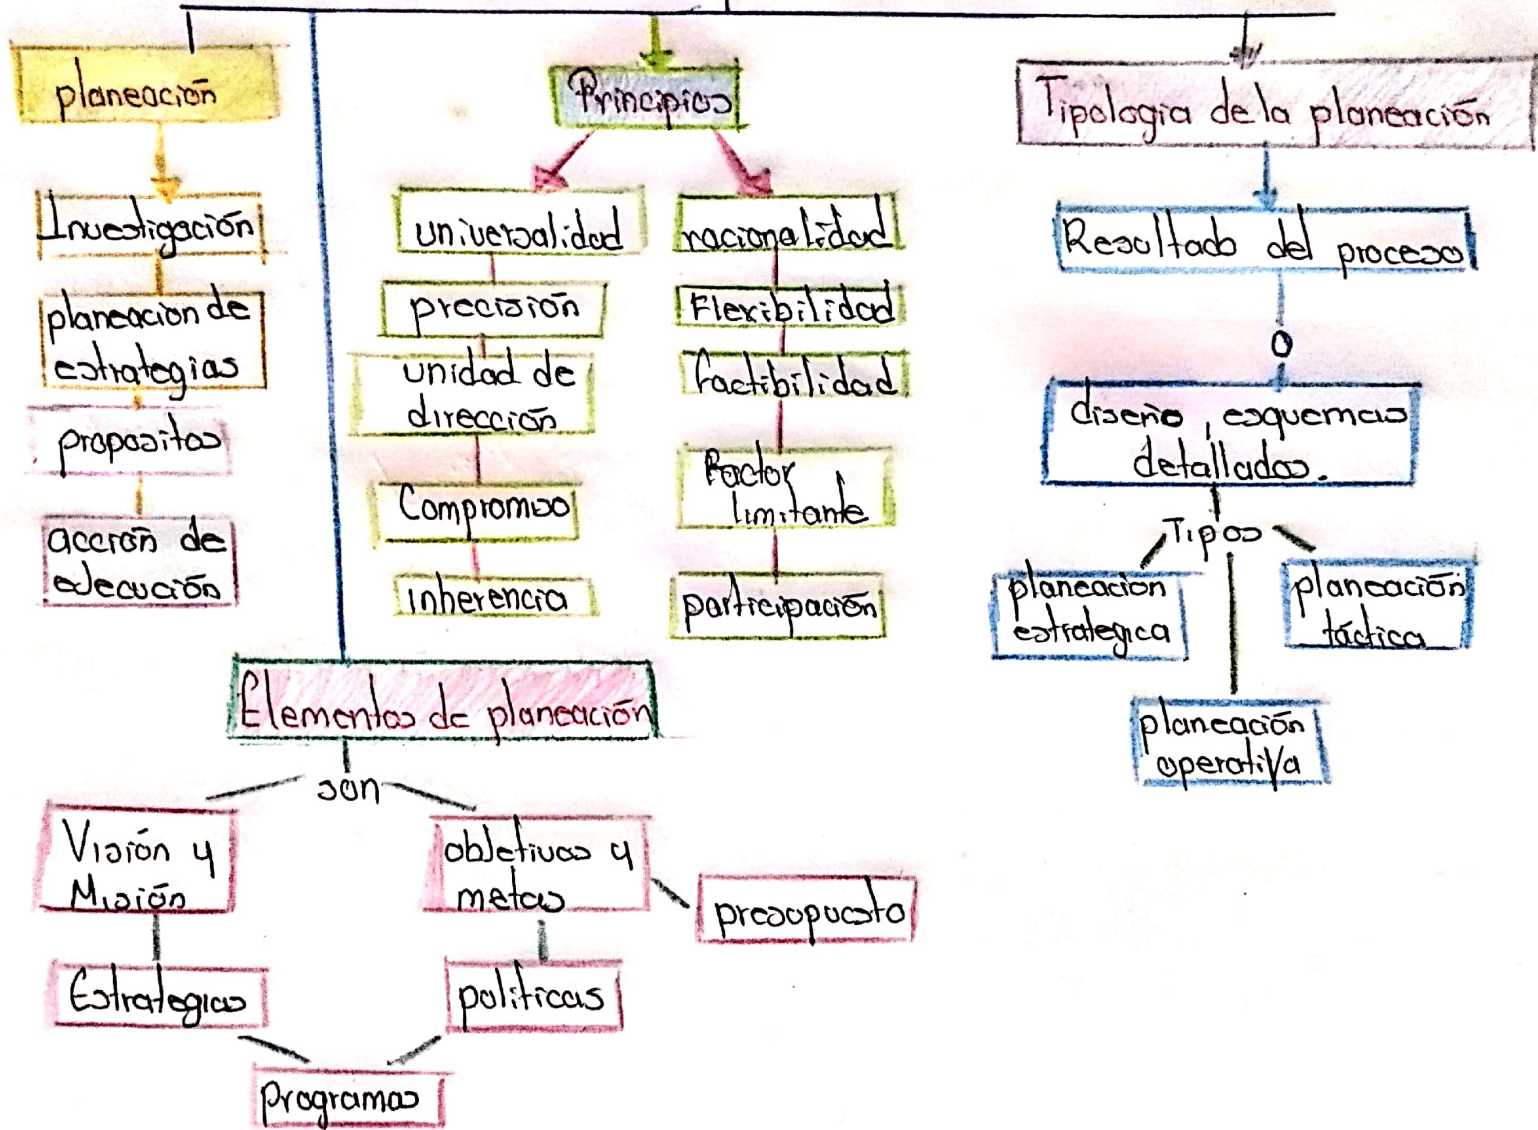 planeación
Investigación
planeacion de
estrategias
propositos
acción de
edecución
Principios
universalidad
precisión
unidad de
dirección
Compromiso
inherencia
racionalidad
Flexibilidad
factibilidad
Factor
limitante
participación
Tipologia de la planeación
Resultado del proceso
o
diseño, esquemas
detallados.
Tipos
planeacion
estrategica
planeación
táctica
planeación
operativa
Elementos de planeación
son
Visión y
Misión
objetivos y
metas
presupuesto
Estrategias
politicas
programas